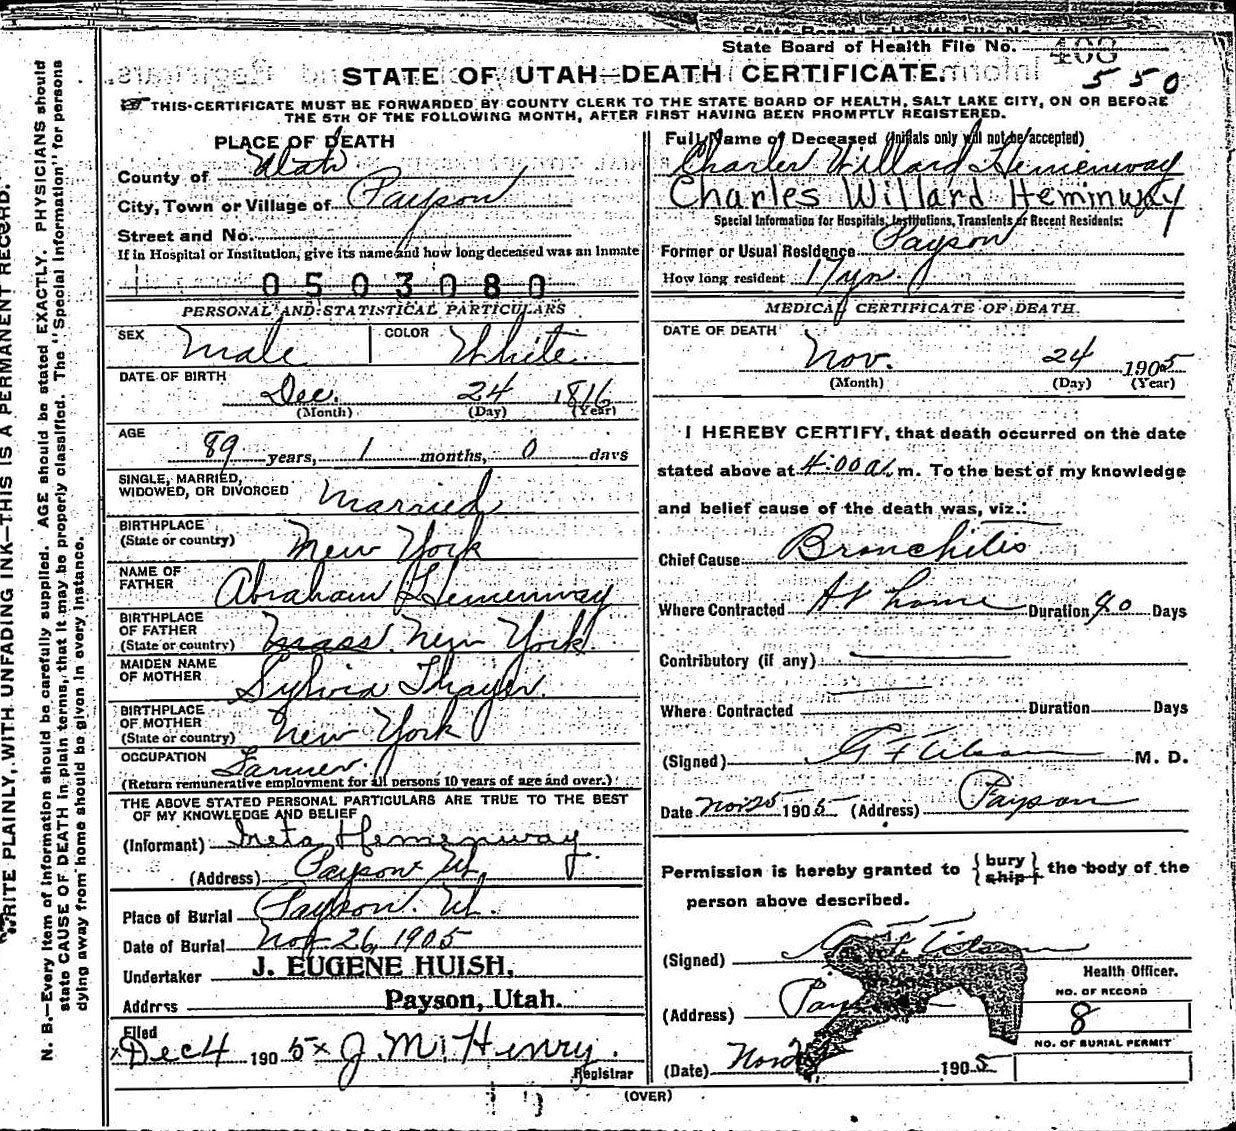 State Board of Health File No. 408
550
STATE OF UTAH—DEATH CERTIFICATE.
THIS CERTIFICATE MUST BE FORWARDED BY COUNTY CLERK TO THE STATE BOARD OF HEALTH, SALT LAKE CITY, ON OR BEFORE
THE 5TH OF THE FOLLOWING MONTH, AFTER FIRST HAVING BEEN PROMPTLY REGISTERED.
WRITE PLAINLY, WITH UNFADING INK—THIS IS A PERMANENT RECORD.
N. B.—Every item of information should be carefully supplied. AGE should be stated EXACTLY. PHYSICIANS should
state CAUSE OF DEATH in plain terms, that it may be properly classified. The "Special Information" for persons
dying away from home should be given in every instance.
PLACE OF DEATH
County of Utah
City, Town or Village of Payson
Street and No.
If in Hospital or Institution, give its name and how long deceased was an Inmate
0503080
PERSONAL AND STATISTICAL PARTICULARS
SEX Male COLOR White
DATE OF BIRTH
Dec. 24 1816
(Month) (Day) (Year)
AGE
89 years, 1 months, 0 days
SINGLE, MARRIED,
WIDOWED, OR DIVORCED Married
BIRTHPLACE
(State or country) New York
NAME OF
FATHER Abraham Hemenway
BIRTHPLACE
OF FATHER
(State or country) Mass. New York
MAIDEN NAME
OF MOTHER Sylvia Thayer
BIRTHPLACE
OF MOTHER
(State or country) New York
OCCUPATION Farmer.
(Return remunerative employment for all persons 10 years of age and over.)
THE ABOVE STATED PERSONAL PARTICULARS ARE TRUE TO THE BEST
OF MY KNOWLEDGE AND BELIEF
(Informant) Ireta Hemenway
(Address) Payson Ut.
Place of Burial Payson. Ut.
Date of Burial Nov 26 1905
Undertaker J. EUGENE HUISH,
Address Payson, Utah.
Filed
x Dec 4 1905 x J. M. Henry.
Registrar
Full Name of Deceased (Initials only will not be accepted)
Charles Willard Hemenway
Charles Willard Heminway
Special Information for Hospitals, Institutions, Transients or Recent Residents:
Former or Usual Residence Payson
How long resident 17 yrs.
MEDICAL CERTIFICATE OF DEATH.
DATE OF DEATH
Nov. 24 1905
(Month) (Day) (Year)
I HEREBY CERTIFY, that death occurred on the date
stated above at 4:00 a. m. To the best of my knowledge
and belief cause of the death was, viz.:
Chief Cause Bronchitis
Where Contracted At home Duration 40 Days
Contributory (if any)
Where Contracted Duration Days
(Signed) M. D.
Date Nov 25 1905 (Address) Payson
Permission is hereby granted to { bury ship } the body of the
person above described.
(Signed)
Health Officer.
(Address)
NO. OF RECORD
8
NO. OF BURIAL PERMIT
(Date) 1905
(OVER)